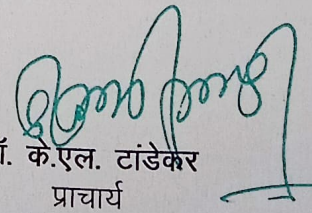 के.एल. टांडेकर
प्राचार्य